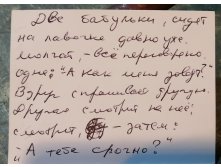 Две бабульки, сидят
на лавочке, давно уже.
Молчат, – всё переговорено.
Одна: "А как меня зовут?"
Вдруг спрашивает другую.
Другая смотрит на неё,
смотрит, – затем:
– "А тебе срочно?"